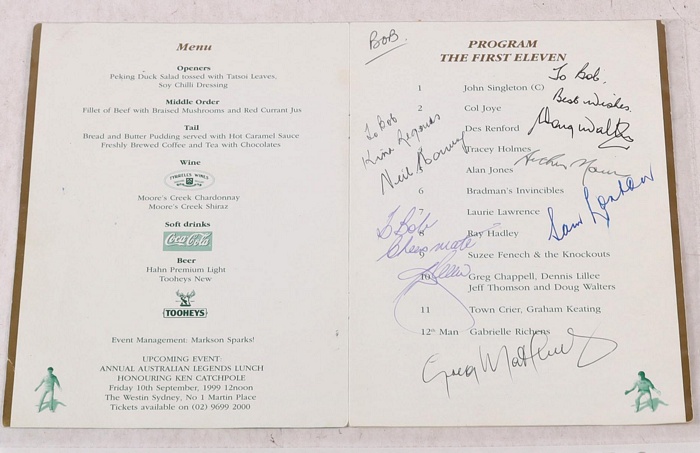 Menu
Openers
Peking Duck Salad tossed with Tatsoi Leaves,
Soy Chilli Dressing
Middle Order
Fillet of Beef with Braised Mushrooms and Red Currant Jus
Tail
Bread and Butter Pudding served with Hot Caramel Sauce
Freshly Brewed Coffee and Tea with Chocolates
Wine
TYRRELL'S WINES
Moore's Creek Chardonnay
Moore's Creek Shiraz
Soft drinks
Coca-Cola
Beer
Hahn Premium Light
Tooheys New
TOOHEYS
Event Management: Markson Sparks!
UPCOMING EVENT:
ANNUAL AUSTRALIAN LEGENDS LUNCH
HONOURING KEN CATCHPOLE
Friday 10th September, 1999 12noon
The Westin Sydney, No 1 Martin Place
Tickets available on (02) 9699 2000
BOB.
PROGRAM
THE FIRST ELEVEN
1 John Singleton (C)
2 Col Joye
Des Renford
Tracey Holmes
5 Alan Jones
6 Bradman's Invincibles
7 Laurie Lawrence
8 Ray Hadley
9 Suzee Fenech & the Knockouts
10 Greg Chappell, Dennis Lillee
Jeff Thomson and Doug Walters
11 Town Crier, Graham Keating
12th Man Gabrielle Richens
To Bob.
Best Wishes
Doug Walters
To Bob
Kind Regards
Neil Harvey
Sam Loxton
To Bob
Cheers mate
Greg Matthews